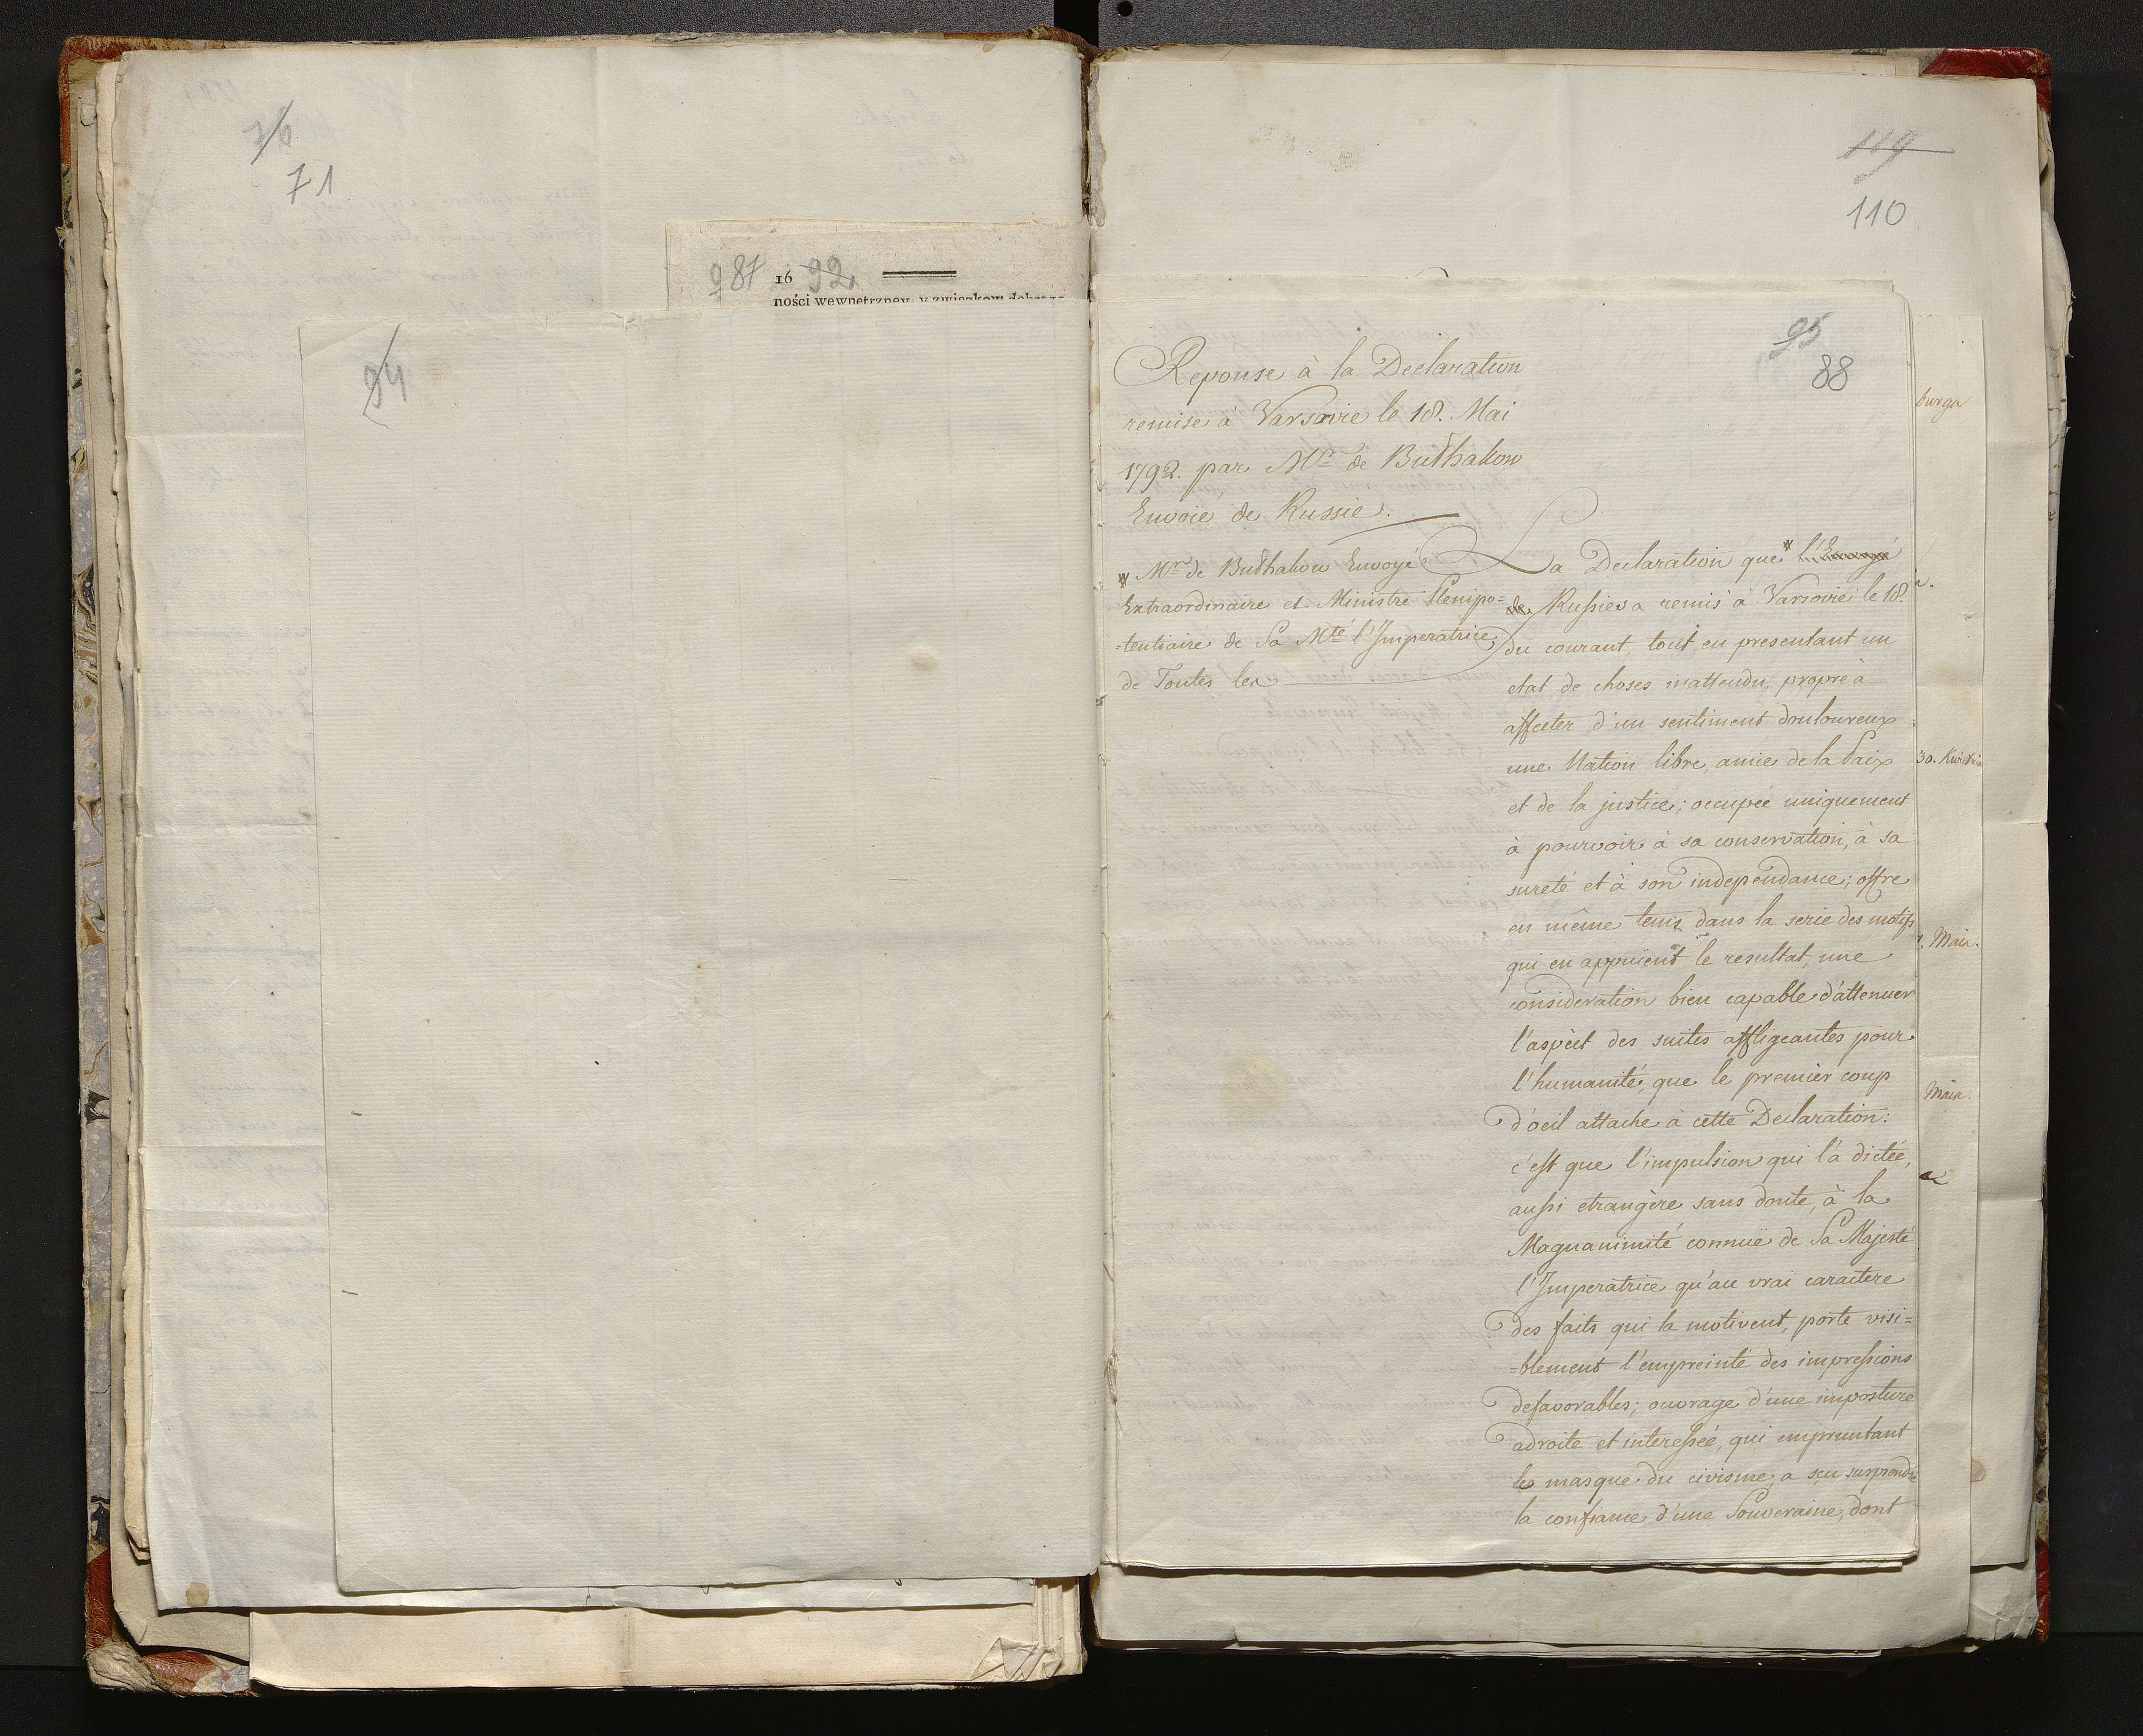 76
71
987 16 92
ności wewnętrzney, y związkow dobrego
94
119
110
95
88
Reponse à la Declaration
remise à Varsovie le 18. Mai
1792. par Mr. de Bulhakow
Envoié de Russie.
* Mr. de Bulhakow Envoyé
Extraordinaire et Ministre Plenipo=
=tentiaire de Sa Mté l'Imperatrice
de Toutes les
La Declaration que * l'Envoyé
de Russie a remis à Varsovie le 18.
du courant, tout en presentant un
etat de choses inattendu, propre à
affecter d'un sentiment douloureux
une Nation libre, amie de la Paix
et de la justice; occupée uniquement
à pourvoir à sa conservation, à sa
sureté et à son independance; offre
en même tems dans la serie des motifs
qui en appuient le resultat, une
consideration bien capable d'attenuer
l'aspect des suites affligeantes pour
l'humanité, que le premier coup
d'oeil attache à cette Declaration:
c'est que l'impulsion qui l'a dictée,
aussi etrangère sans doute, à la
Magnanimité connuë de Sa Majesté
l'Imperatrice qu'au vrai caractere
des faits qui la motivent, porte visi=
=blement l'empreinte des impressions
defavorables; ouvrage d'une imposture
adroite et interessée, qui empruntant
le masque du civisme, a sçu surprendre
la confiance d'une Souveraine, dont
burga
30. Kwietnia
1. Maia.
Maia.